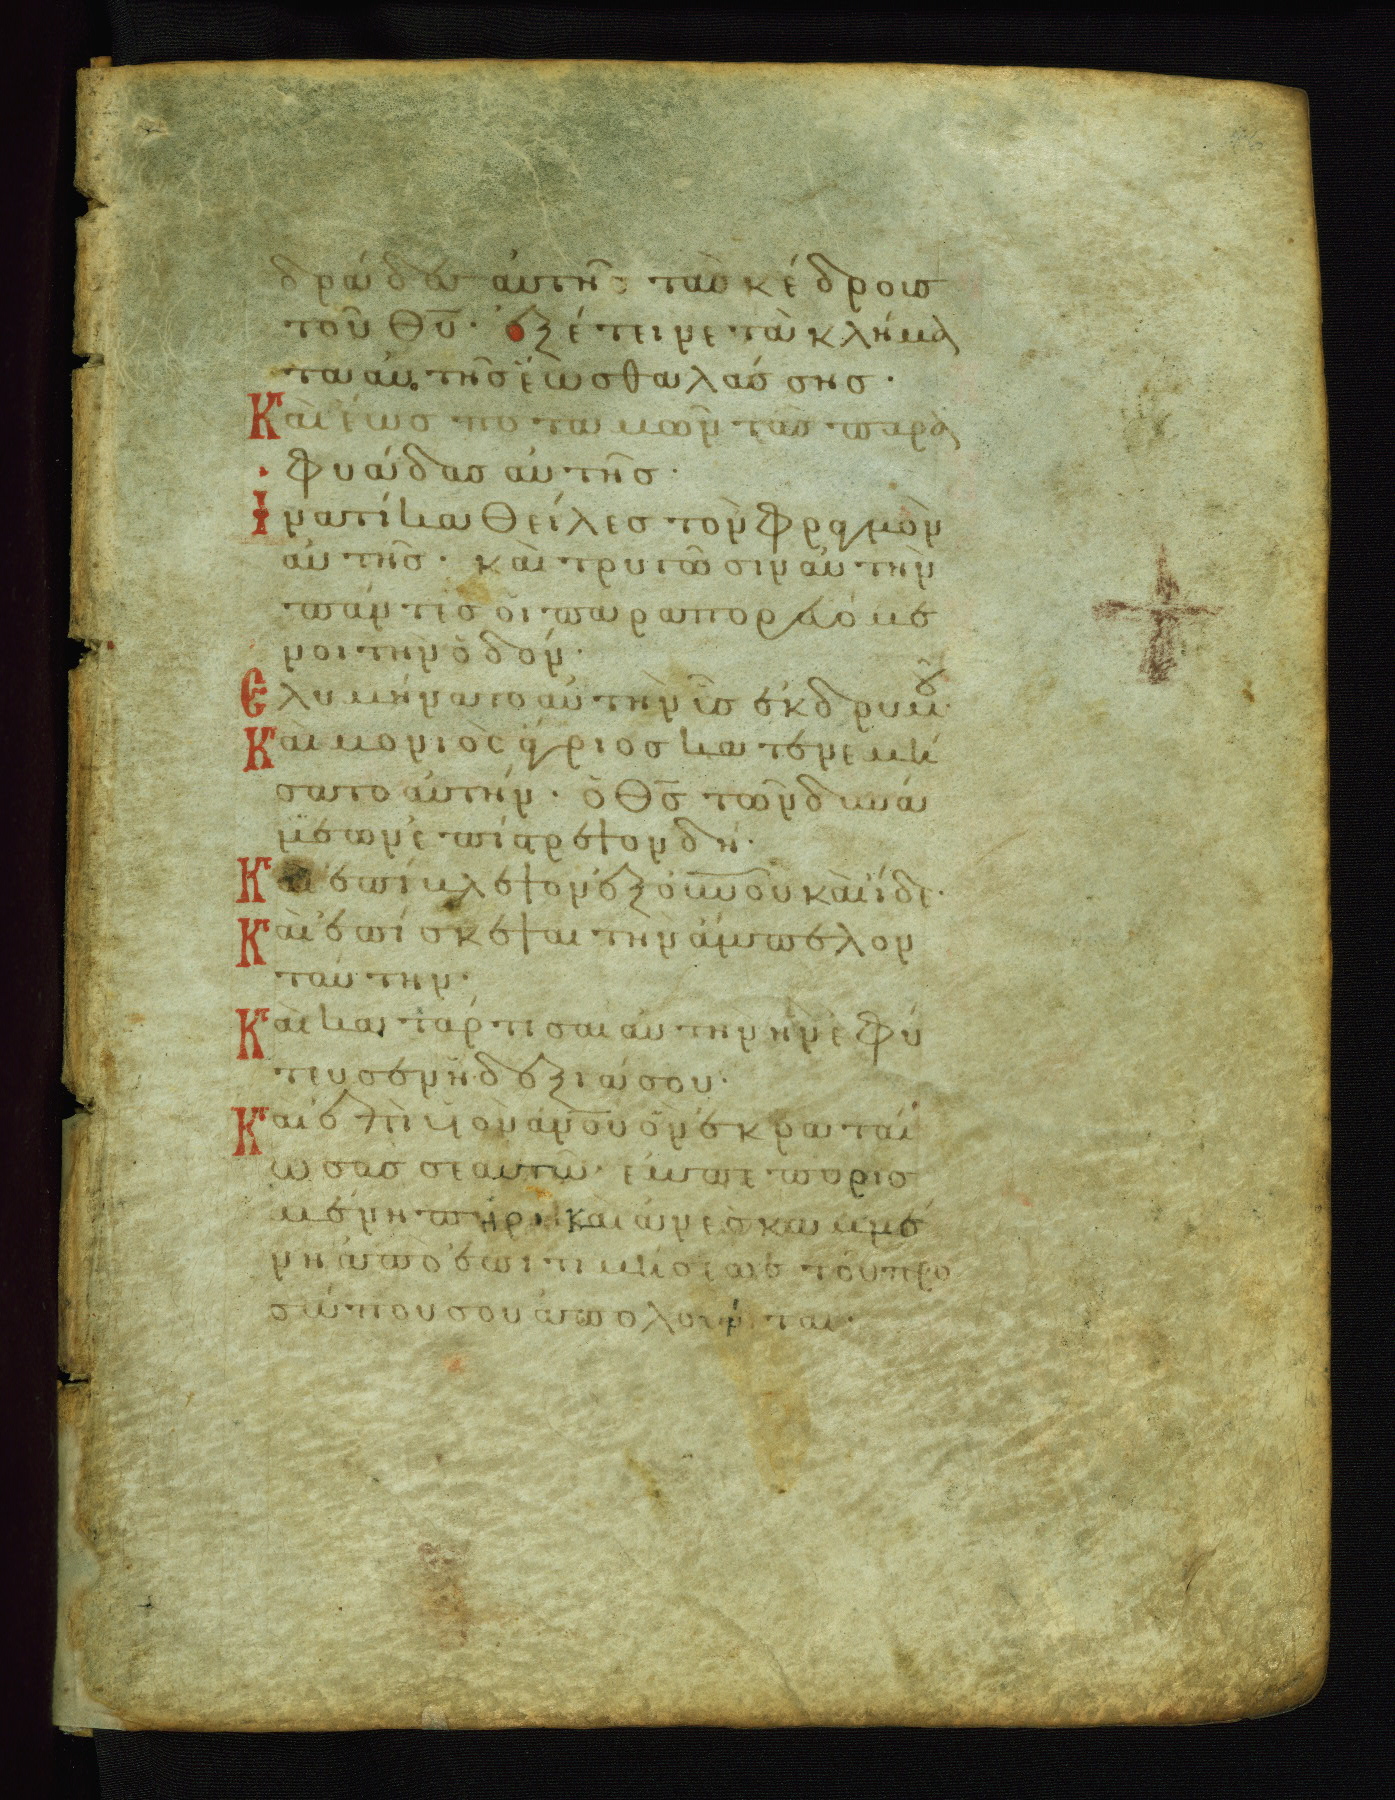 δράδα αὐτῆς τὰς κέδροις
τοῦ Θῦ· ἐξέτεινε τὰ κλήμα
τα αὐτῆς ἕως θαλάσσης·
Καὶ ἕως ποταμῶν τὰς παρα
φυάδας αὐτῆς·
Ἱνατί καθεῖλες τὸν φραγμὸν
αὐτῆς· καὶ τρυγῶσιν αὐτὴν
πάντες οἱ παραπορευόμε
νοι τὴν ὁδόν·
Ελυμήνατο αὐτὴν ὗς ἐκ δρυμοῦ·
Καὶ μονιὸς ἄγριος κατενεμή
σατο αὐτήν· ὁ Θς τῶν δυνά
μεων ἐπίστρεψον δή·
Καὶ ἐπίβλεψον ἐξ οὐνοῦ καὶ ἴδε·
Καὶ ἐπίσκεψαι τὴν ἄμπελον
ταύτην·
Καὶ κατάρτισαι αὐτὴν ἣν ἐφύ
τευσεν ἡ δεξιά σου·
Καὶ ἐπὶ υἱὸν ἀνου ὃν ἐκραταί
ωσας σεαυτῷ· ἐμπεπυρισ
μένη πυρὶ καὶ ἀνεσκαμμέ
νη ἀπὸ ἐπιτιμήσεως τοῦ προ
σώπου σου ἀπολοῦνται·